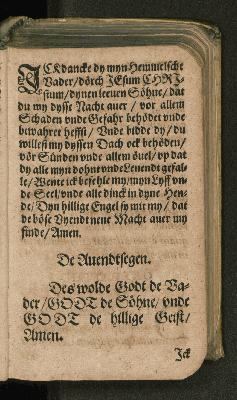 JCk dancke dy myn Hemmelsche
Vader/ dörch JEsum CHRI-
stum/ dynen leeuen Söhne/ dat
du my dysse Nacht auer / vor allem
Schaden vnde Gefahr behödet vnde
bewahret heffst/ Vnde bidde dy/ du
willest my dyssen Dach ock behöden/
vör Sünden vnde allem öuel/ vp dat
dy alle myn dohnt vnde Leuendt gefal-
le/ Wente ick befehle my/ myn Lyff vn-
de Seel/ vnde alle dinck in dyne Hen-
de/ Dyn hillige Engel sy mit my/ dat
de böse Vyendt nene Macht auer my
finde/ Amen.
De Auendtsegen.
Des wolde Godt de Va-
der/ GODT de Söhne/ vnde
GODT de hillige Geist/
Amen.
Jck